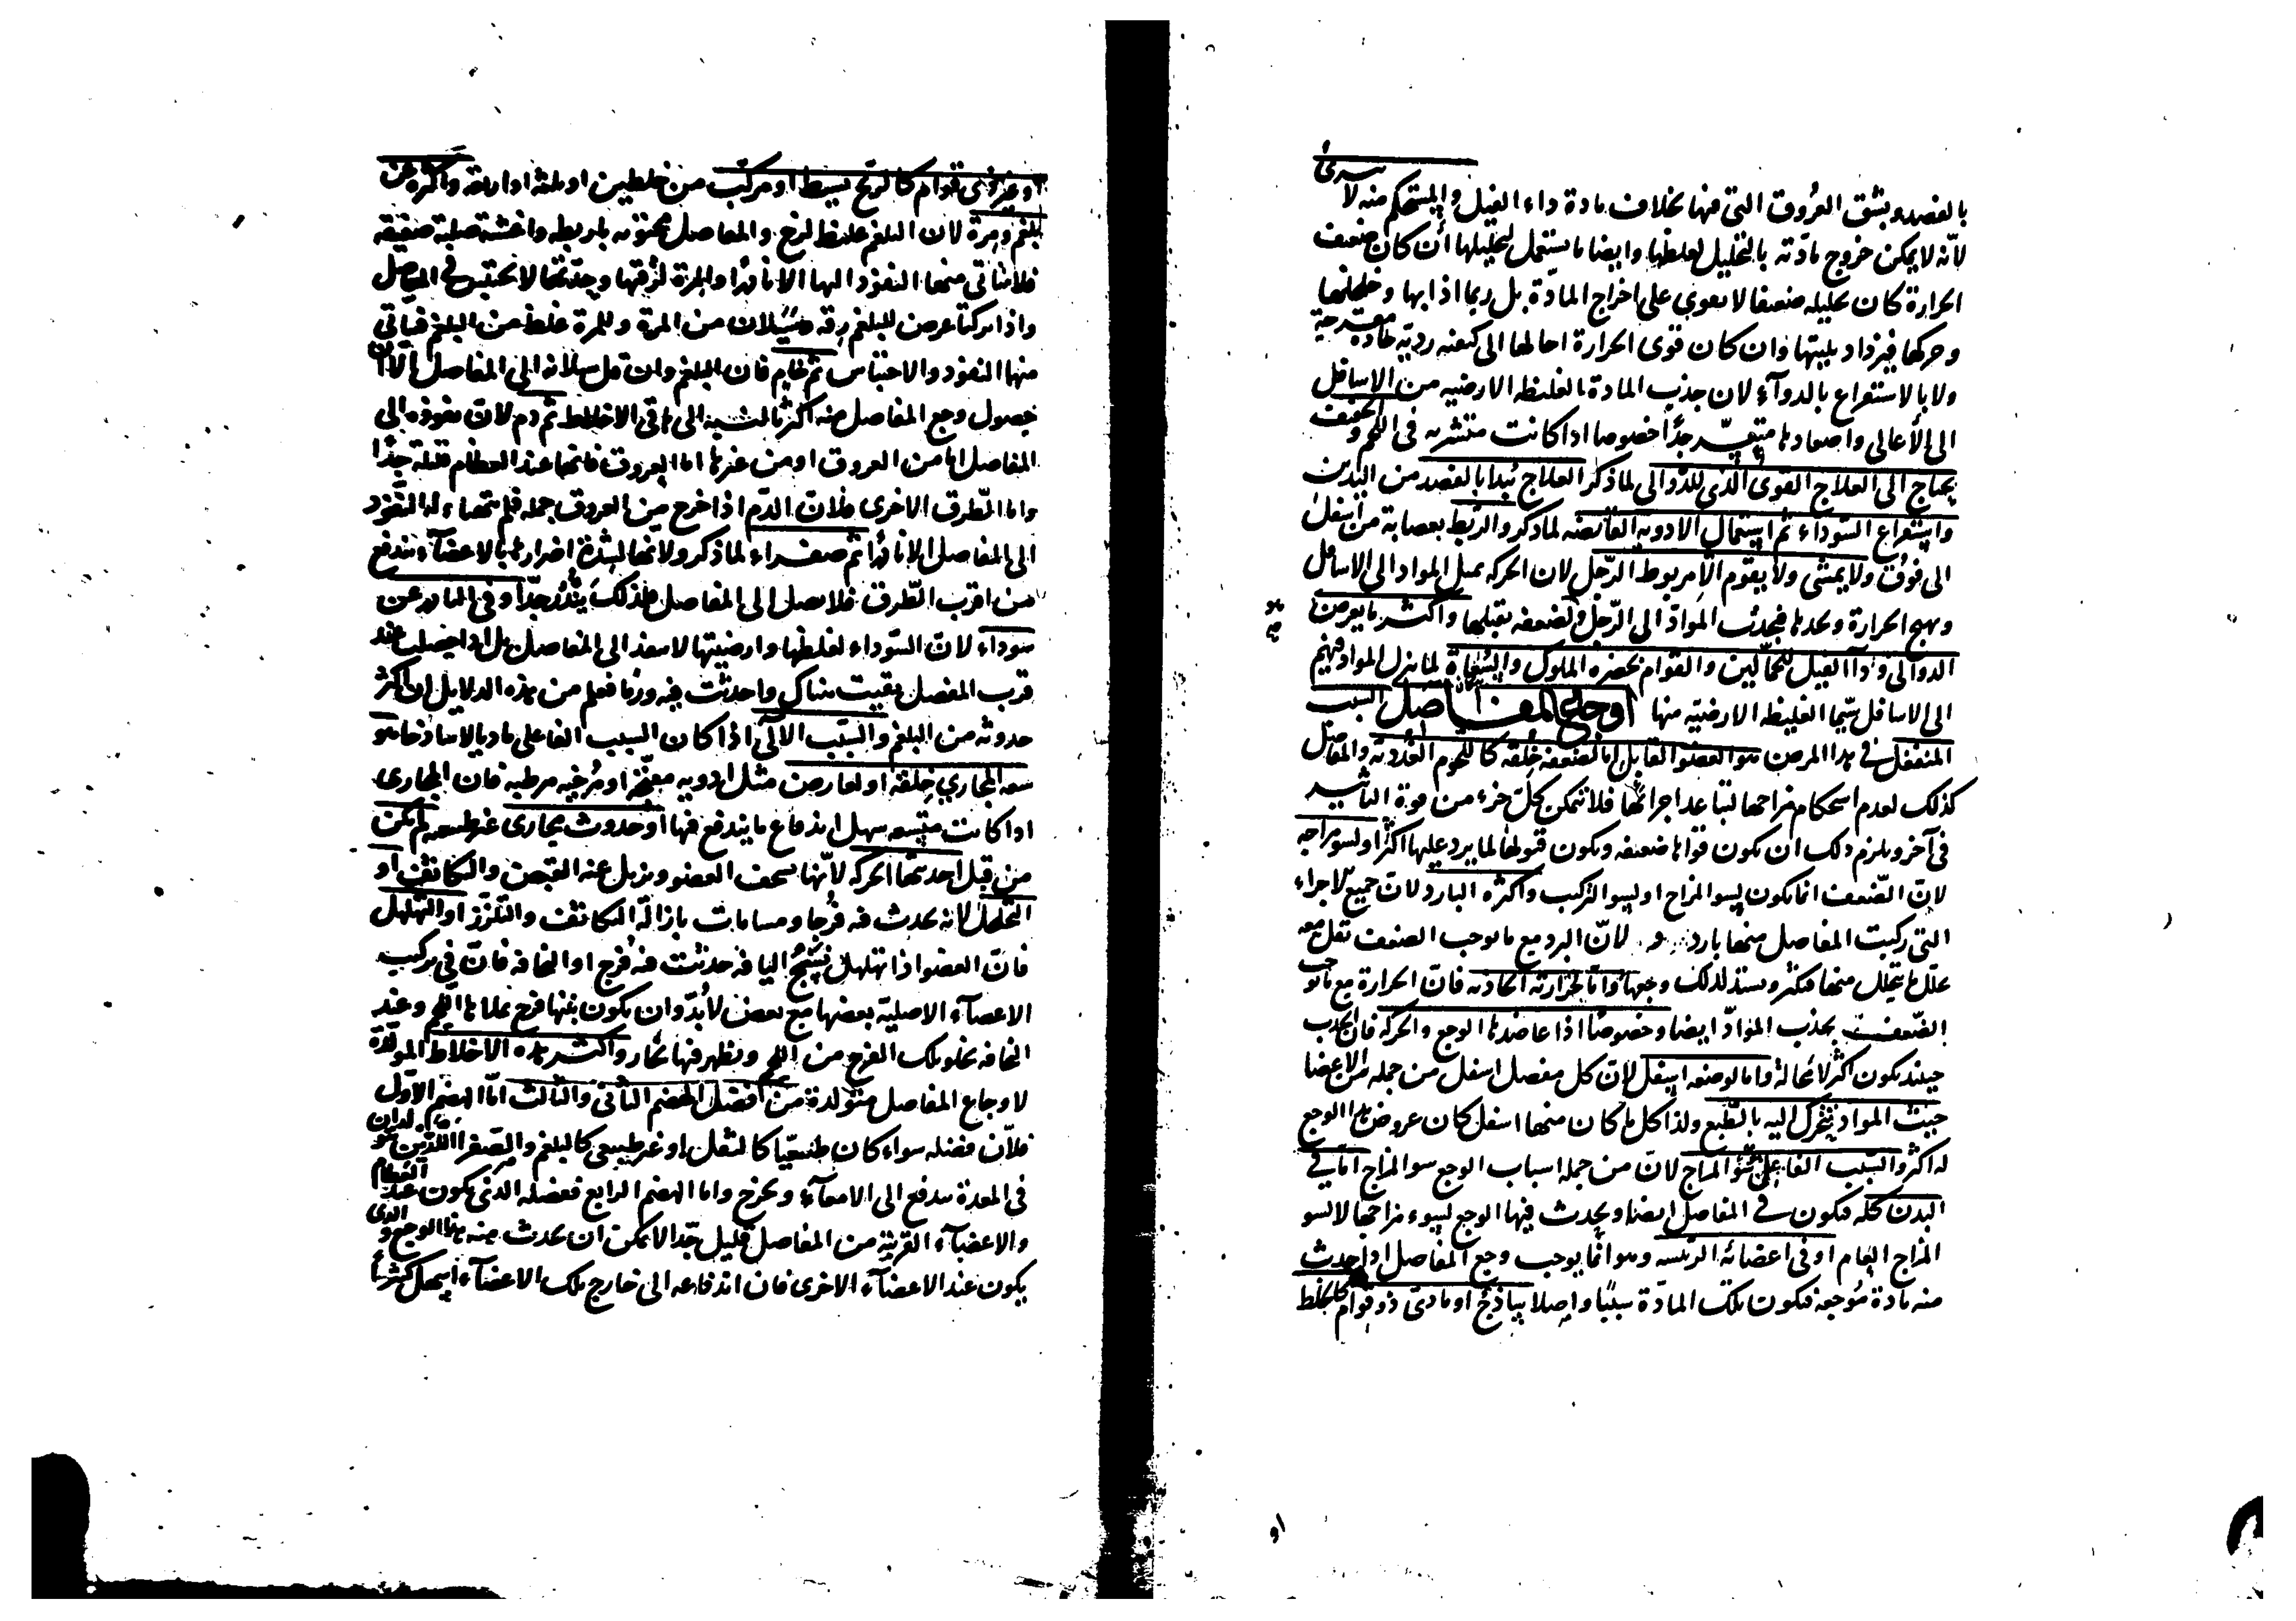 بالفصد وبشق العروق التى فيها بخلاف مادة داء الفيل والمستحكم منه لا يبرئ
لانه لا يمكن خروج مادته بالتحليل لغلظها وايضا ما يستعمل لتحليلها ان كان ضعيف
الحرارة كان تحليله ضعيفا لا يقوى على اخراج المادة بل ربما اذابها وخلخلها
وحركها فيزداد بليتها وان كان قوى الحرارة احالها الى كيفية ردية حادة مقرحة
ولا بالاستفراغ بالدوآء لان جذب المادة الغليظة الارضيه من الاسافل
الى الأعالى واصعادها متعسّر جدًا خصوصا اذا كانت منتشرة فى اللحم والخفيف
يحتاج الى العلاج القوى الذى للدوالى لما ذكر العلاج يبدا بالفصد من اليدين
واستفراغ السوداء ثم استعمال الادوية القابضه لما ذكر والربط بعصابة من اسفل
الى فوق ولا يمشى ولا يقوم الا مربوط الرجل لان الحركه تميل المواد الى الاسافل
وتهيج الحرارة وتحدها فيجذب المواد الى الرّجل ولضعفه يقبلها واكثر ما يعرض
الدوالى وداآ الفيل للحمالين والقوام بحضرة الملوك والسعاة لما ينزل المواد فيهم
الى الاسافل سيما الغليظه الارضيّه منها اوجاع المفاصل السبب
المنفعل فى هذا المرض هو العضو القابل اما لضعفه خلقة كاللحوم الغددية والمفاصل
كذلك لعدم استحكام مزاجها لتباعد اجزائها فلا تتمكن كل جزء من قوة التاثير
فى آخر ويلزم ذلك ان يكون قواها ضعيفه ويكون قبولها لما يرد عليها اكثر او لسو مزاجه
لان الضعف انما يكون لسو المزاج او لسو التركيب واكثره البارد لان جميع الاجزاء
التى ركبت المفاصل منها باردة ولان البرد مع ما يوجب الضعف تقل معه
تحلل ما يتحلل منها فيكثر ويشتد لذلك وجعها واما لحرارته الحادثه فان الحرارة مع ما توجب
الضعف يجذب المواد ايضا وخصوصًا اذا عاضدها الوجع والحركه فان الجذب
حينئذ يكون اكثر لا محالة واما لوضعه اسفل لان كل مفصل اسفل من جملة من الاعضا
حيث المواد يتحرك اليه بالطبع ولذا كل ما كان منها اسفل كان عروض هذا الوجع
له اكثر والسبب الفاعلى سوء المزاج لان من جملة اسباب الوجع سو المزاج اما فى
البدن كله فيكون فى المفاصل ايضا ويحدث فيها الوجع لسوء مزاجها لا لسو
المزاج العام او فى اعضائه الرئيسه وهو انما يوجب وجع المفاصل اذا حدث
منه مادة موجعة فيكون تلك المادة سببًا واصلا ساذج او مادى ذو قوام كالخلط
او
او غير ذى قوام كالريح بسيط او مركب من خلطين او ثلثه او اربعة واكثره عن
بلغم ومرة لان البلغم غليظ لزج والمفاصل محتوية باربطه واغشية صلبة صفيقة
فلا يتاتى منها النفوذ اليها الا نادرًا والمرة لرقتها وحدتها لا تحتبس فى المفاصل
واذا تركبا عرض للبلغم رقة وسيلان من المرة وللمرة غلظ من البلغم فياتى
منها النفوذ والاحتباس ثم خام فان البلغم وان قل سيلانه الى المفاصل الا ان
حصول وجع المفاصل منه اكثر بالنسبه الى باقى الاخلاط ثم دم لان نفوذه الى
المفاصل اما من العروق او من غيرها اما العروق فانها عند العظام قليلة جدًا
واما الطرق الاخرى فلان الدم اذا خرج من العروق جمله فلم يتهياء له النفوذ
الى المفاصل الا نادرًا ثم صفراء لما ذكر ولانها لشدة اضرارها بالاعضآء تندفع
من اقرب الطرق فلا تصل الى المفاصل فلذلك يندر جدًا وفى النادر عن
سوداء لان السوداء لغلظها وارضيتها لا تنفذ الى المفاصل بل اذا حصلت عند
قرب المفصل بقيت هناك واحدثت فيه ورمًا فعلم من هذه الدلايل ان اكثر
حدوثه من البلغم والسبب الآلى اذا كان السبب الفاعلى ماديا لا ساذجا هو
سعه المجاري خلقة او لعارض مثل ادويه مفتحة او مرخيه مرطبه فان المجارى
اذا كانت متسعه سهل اندفاع ما يندفع فيها او حدوث مجارى غير طبيعيه لم يكن
من قبل احدثتها الحركه لانها تسخف العضو ويزيل عنه القبض والتكاثف او
التخلخل لانه يحدث فيه فرجا ومسامات بازالة التكاثف والتلزز او التهلهل
فان العضو اذا تهلهل نسج اليافه حدثت فيه فرج او النحافه فان فى تركيب
الاعضآء الاصلية بعضها مع بعض لا بدّ وان يكون بينها فرج يملاها اللحم وعند
النحافه تخلو تلك الفرج من اللحم وتظهر فيها مجار واكثر هذه الاخلاط المولدة
لاوجاع المفاصل متولدة من فضل الهضم الثانى والثالث امّا الهضم الاول
فلان فضله سواء كان طبيعيًا كالثفل او غير طبيعى كالبلغم والصفرا اللذين
فى المعدة يندفع الى الامعآء ويخرج واما الهضم الرابع ففضله الذى يكون عند العظام
والاعضآء القريبة من المفاصل قليل جدًا لا يمكن ان يحدث منه هذا الوجع والذى
يكون عند الاعضآء الاخرى فان اندفاعه الى خارج تلك الاعضآء اسهل كثيرًا